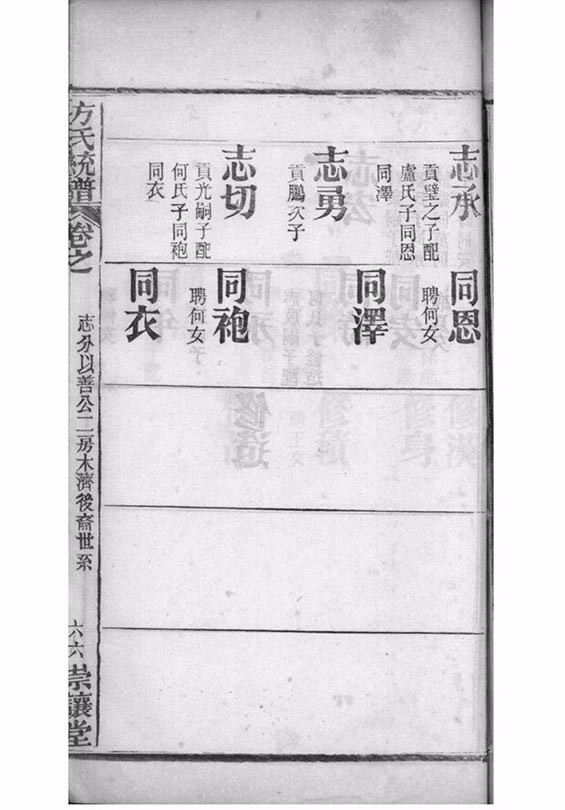 志承
貢璧之子配
盧氏子同恩
同澤
志勇
貢鵬次子
志切
貢光嗣子配
何氏子同袍
同衣
同恩
聘何女
同澤
同袍
聘何女
同衣
方氏統譜
卷之
志分以善公二房木濟後裔世系
六六
崇讓堂